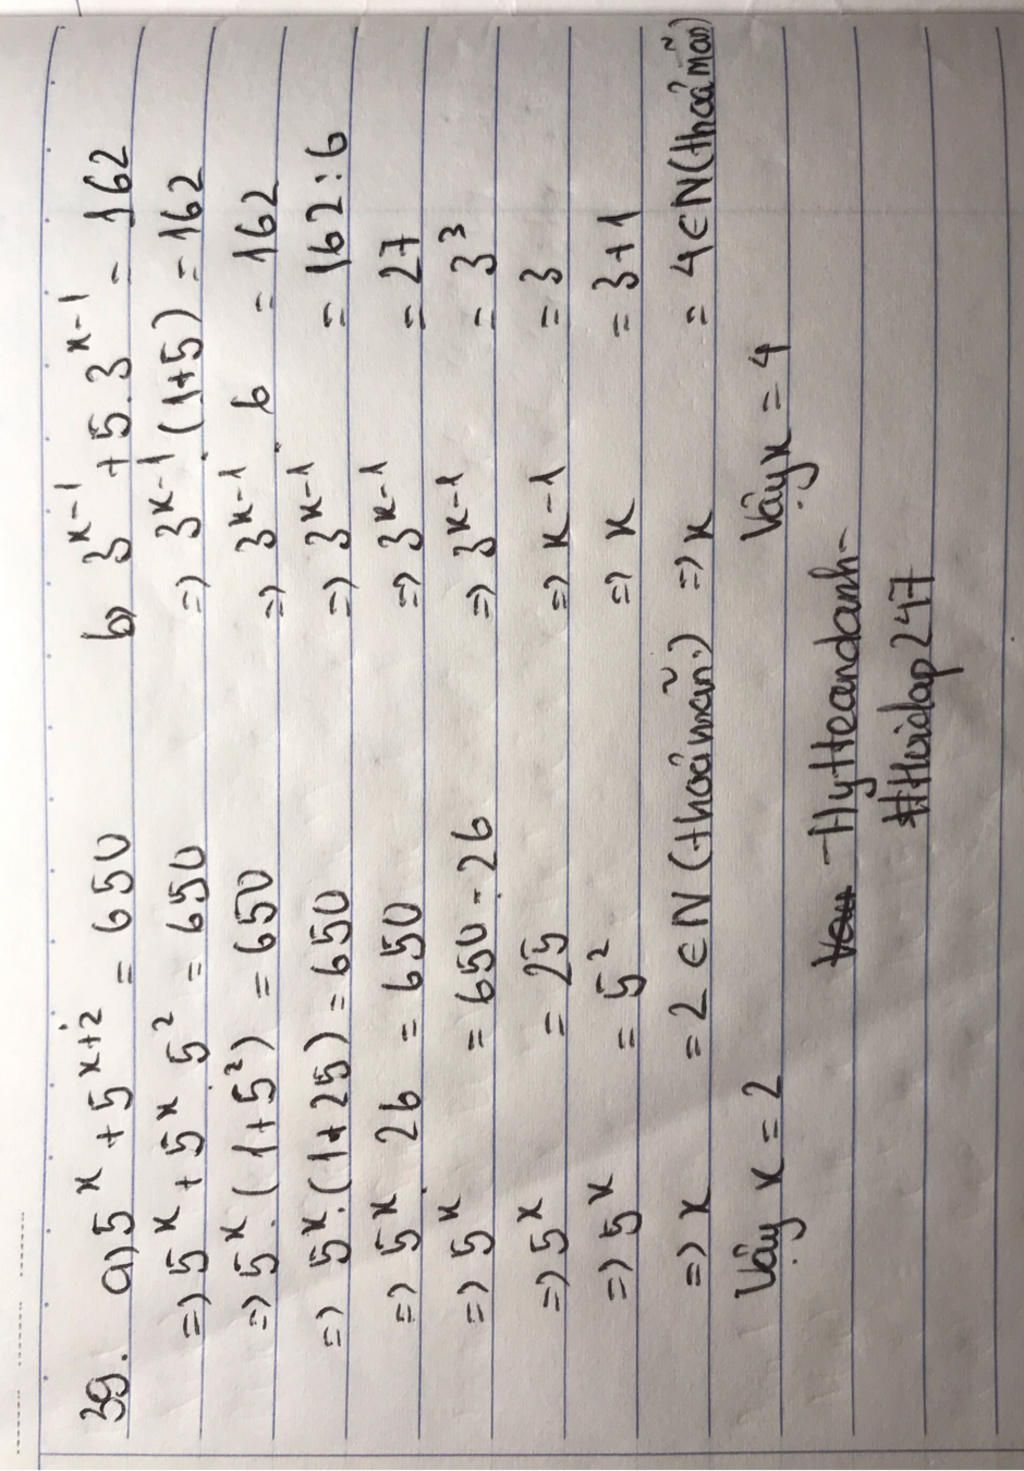 39. a) 5ˣ + 5ˣ⁺² = 650
=> 5ˣ + 5ˣ . 5² = 650
=> 5ˣ . (1+5²) = 650
=> 5ˣ . (1+25) = 650
=> 5ˣ . 26 = 650
=> 5ˣ = 650 : 26
=> 5ˣ = 25
=> 5ˣ = 5²
=> x = 2 ∈ N (thoả mãn.)
Vậy x = 2
b) 3ˣ⁻¹ + 5.3ˣ⁻¹ = 162
=> 3ˣ⁻¹ . (1+5) = 162
=> 3ˣ⁻¹ . 6 = 162
=> 3ˣ⁻¹ = 162 : 6
=> 3ˣ⁻¹ = 27
=> 3ˣ⁻¹ = 3³
=> x-1 = 3
=> x = 3+1
=> x = 4 ∈ N (thoả mãn)
Vậy x = 4
#Hoidap247